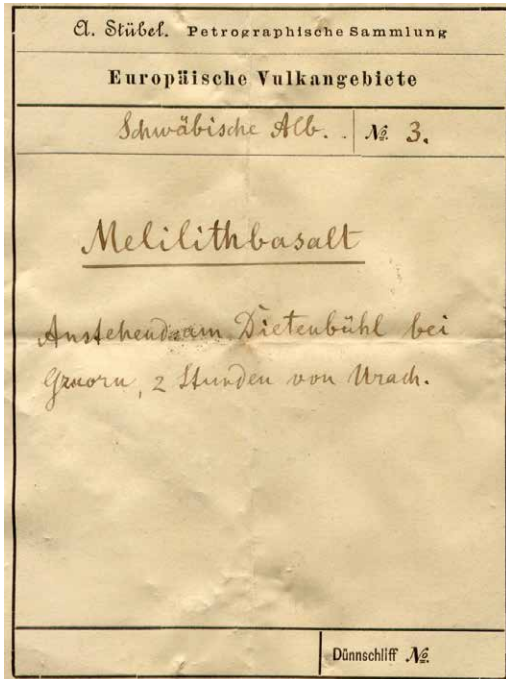 A. Stübel. Petrographische Sammlung
Europäische Vulkangebiete
Schwäbische Alb. . № 3.
Melilithbasalt
Anstehend am Dietenbühl bei
Gruorn, 2 Stunden von Urach.
Dünnschliff №